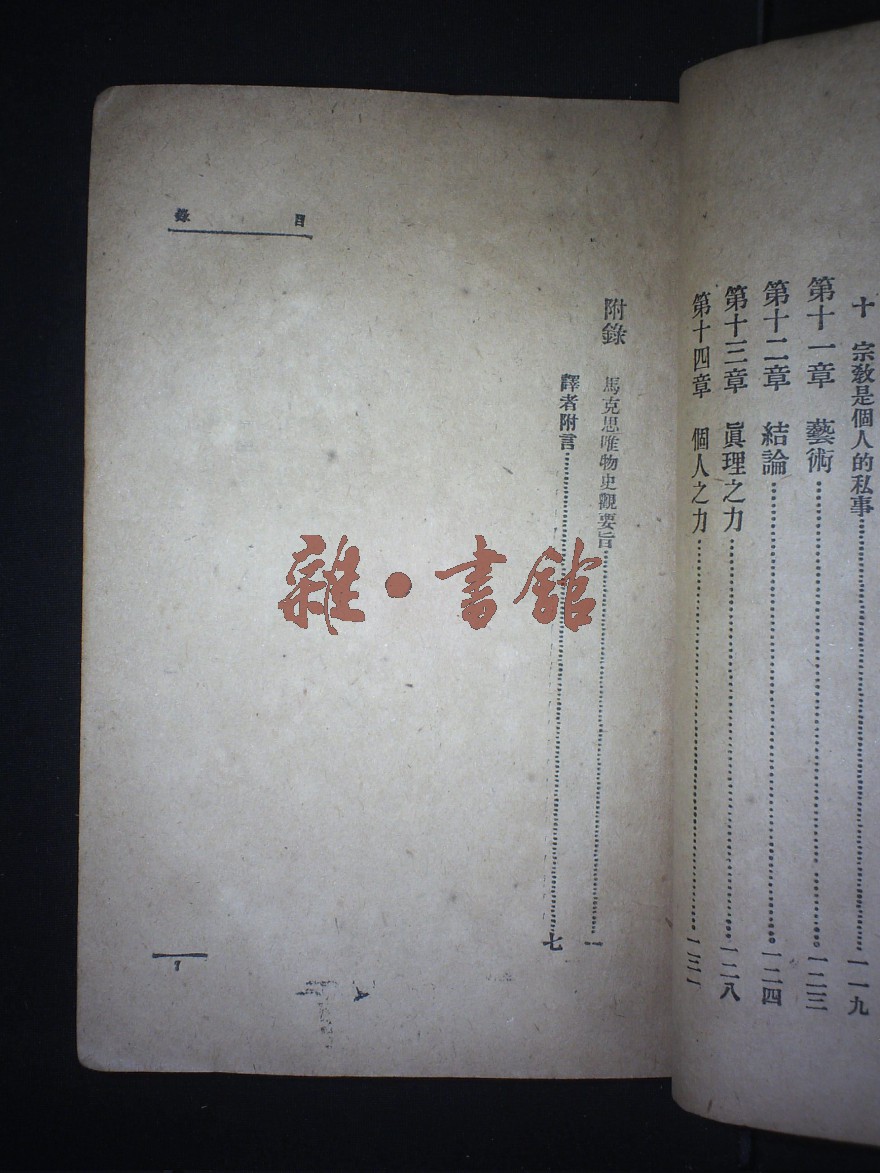 十 宗教是個人的私事……一一九
第十一章 藝術……一二三
第十二章 結論……一二四
第十三章 眞理之力……一二八
第十四章 個人之力……一三一
目錄
附錄 馬克思唯物史觀要旨……一
譯者附言……七
雜·書館